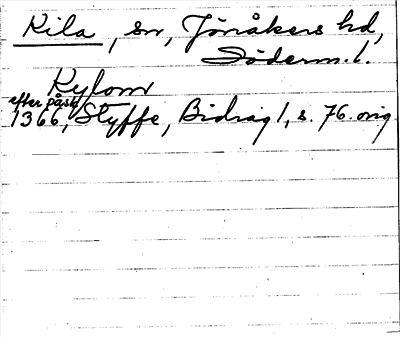 Kila, sn, Jönåkers hd,
Söderm. l.
Kylom
efter påsk
1366, Styffe, Bidrag 1, s. 76. orig